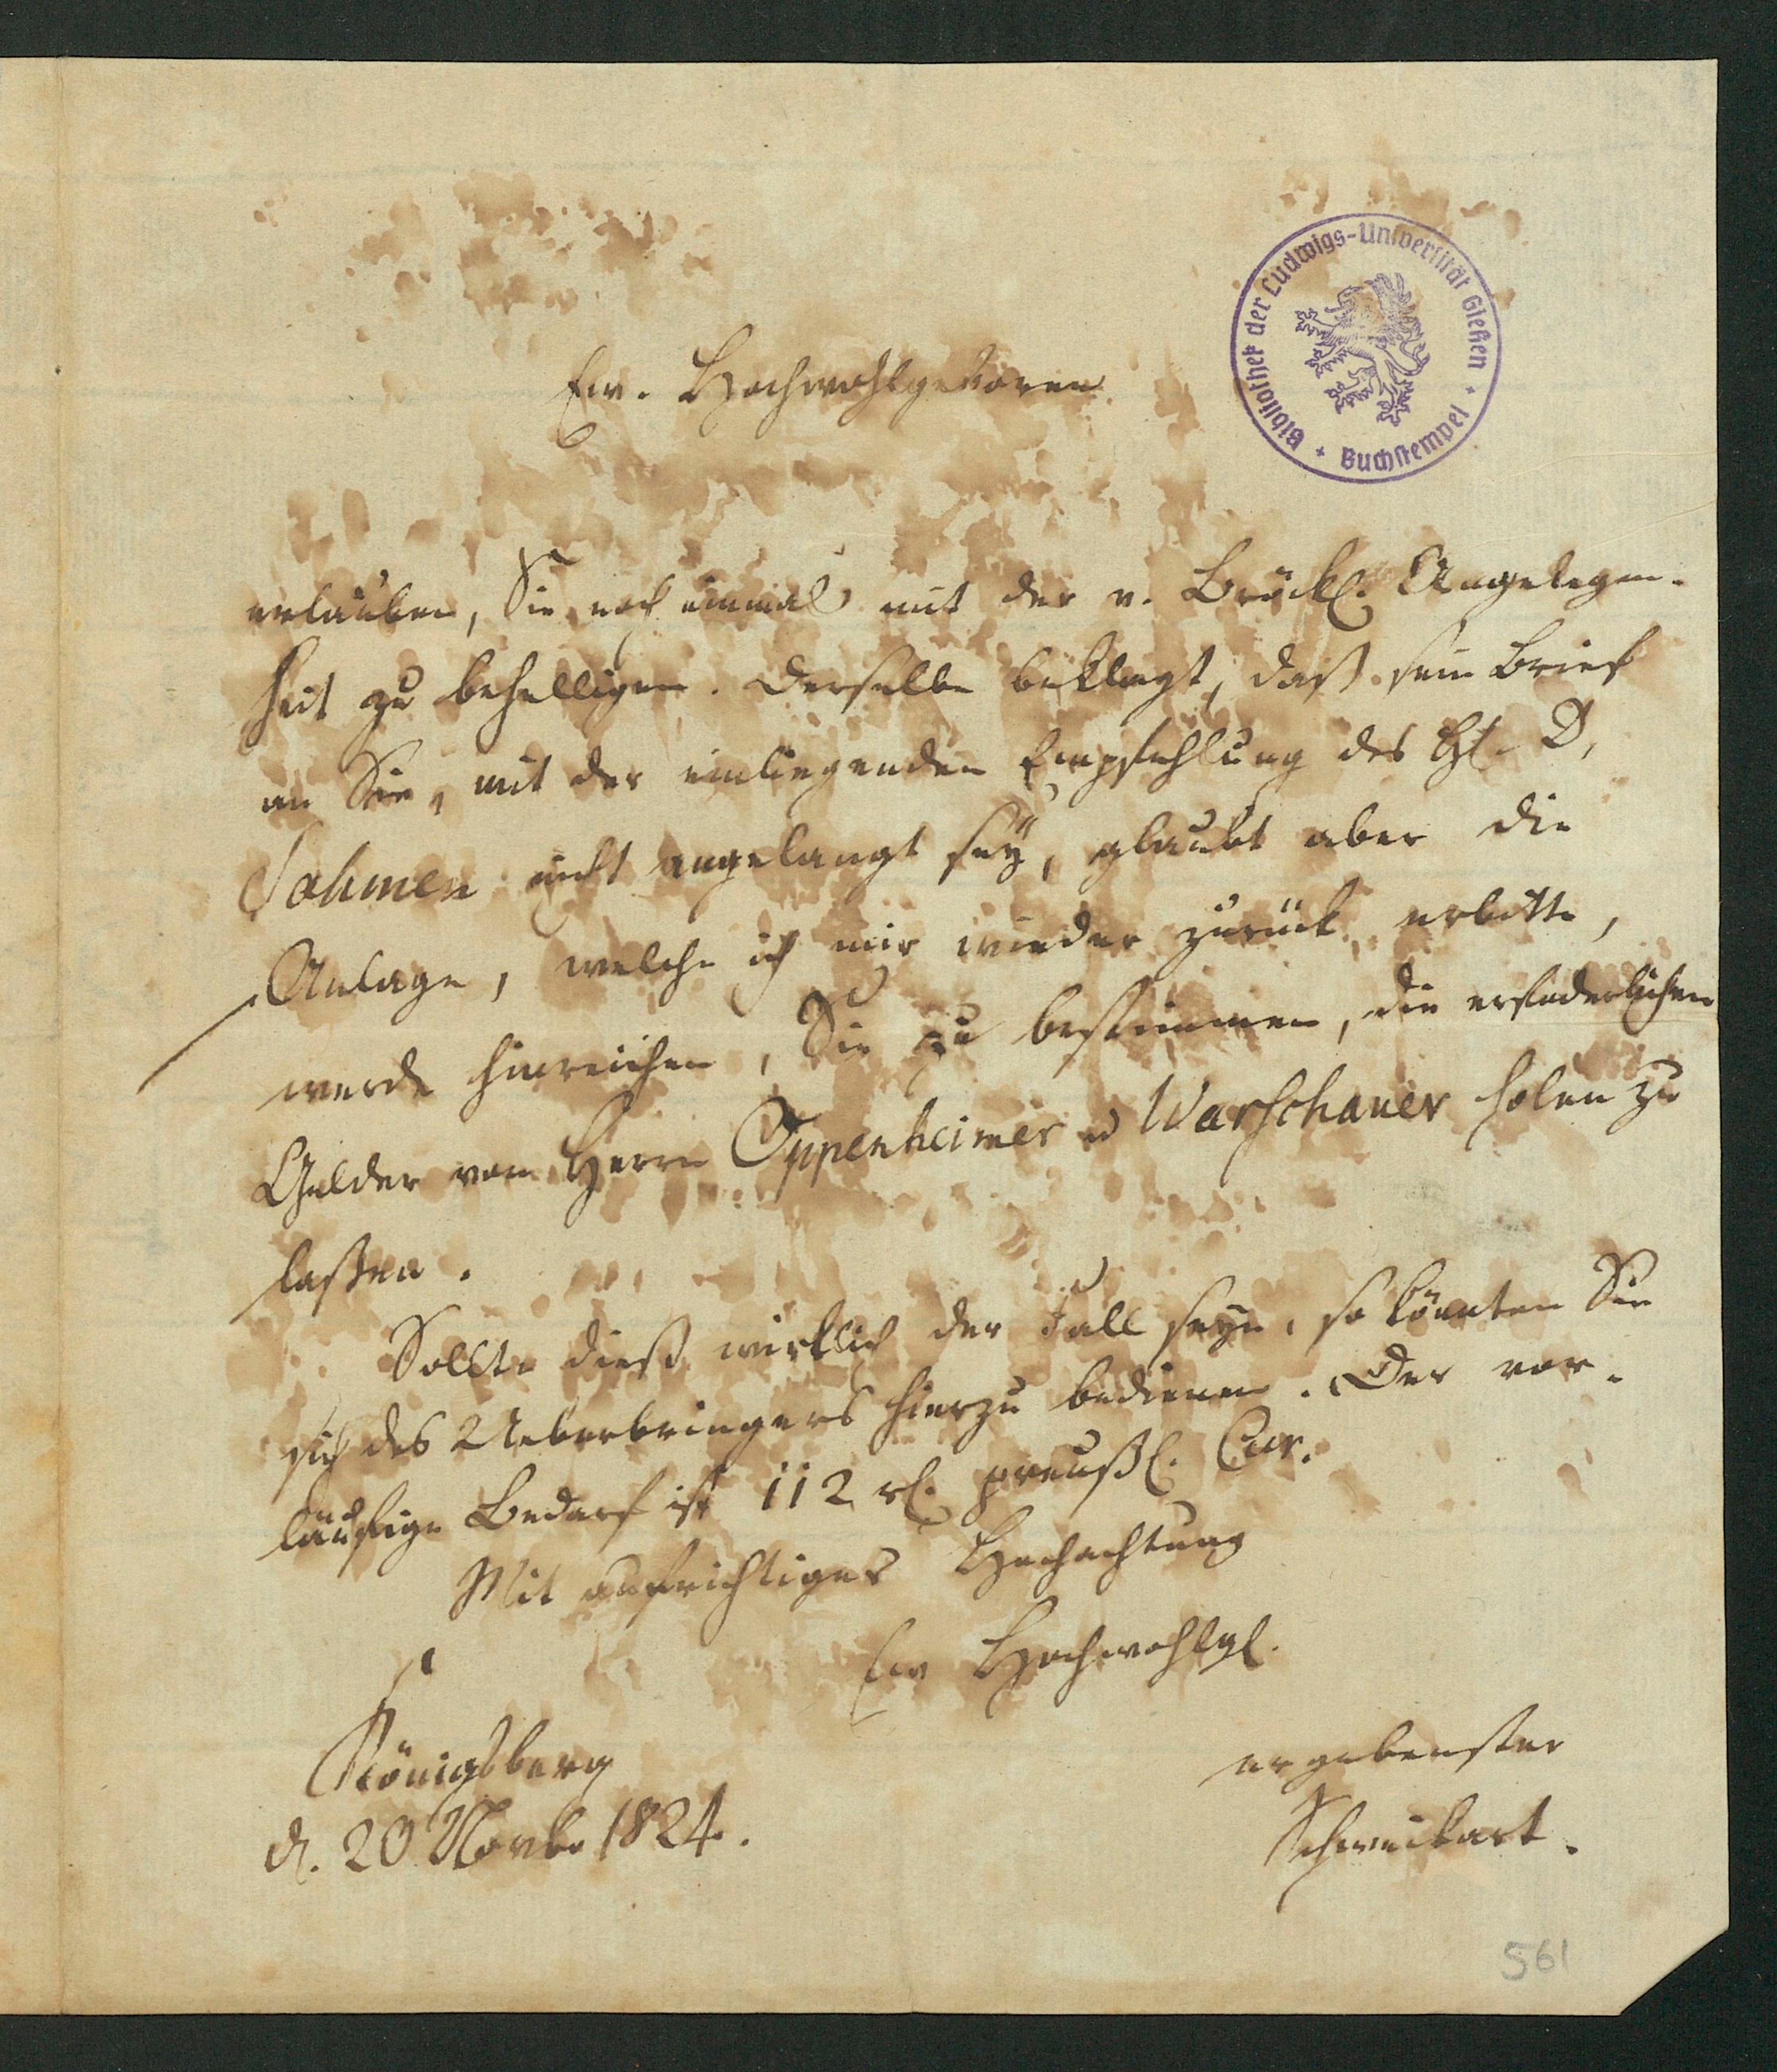 Bibliothek der Ludwigs-Universität Gießen
Buchstempel
Ew. Hochwohlgeboren
erlauben, Sie noch einmal mit der v. Angelegen-
heit zu behelligen. Derselbe beklagt, daß sein Brief
an Sie, mit der einliegenden Empfehlung des H. D.
Sahmen nicht angelangt sey, glaubt aber die
Anlage, welche ich mir wieder zurück erbitte,
werde hinreichen, Sie zu bestimmen, die erfoderlichen
Gelder von Herrn Oppenheimer u Warschauer holen zu
laßen.
Sollte dieß wirklich der Fall seyn, so könnten Sie
sich des Ueberbringers hierzu bedienen. Der vor-
läufige Bedarf ist 112 rl. preußl. Cur.
Mit aufrichtiger Hochachtung
Ew Hochwohlgl.
Königsberg
d. 20 Novbr 1824.
ergebenster
Schweikart.
561